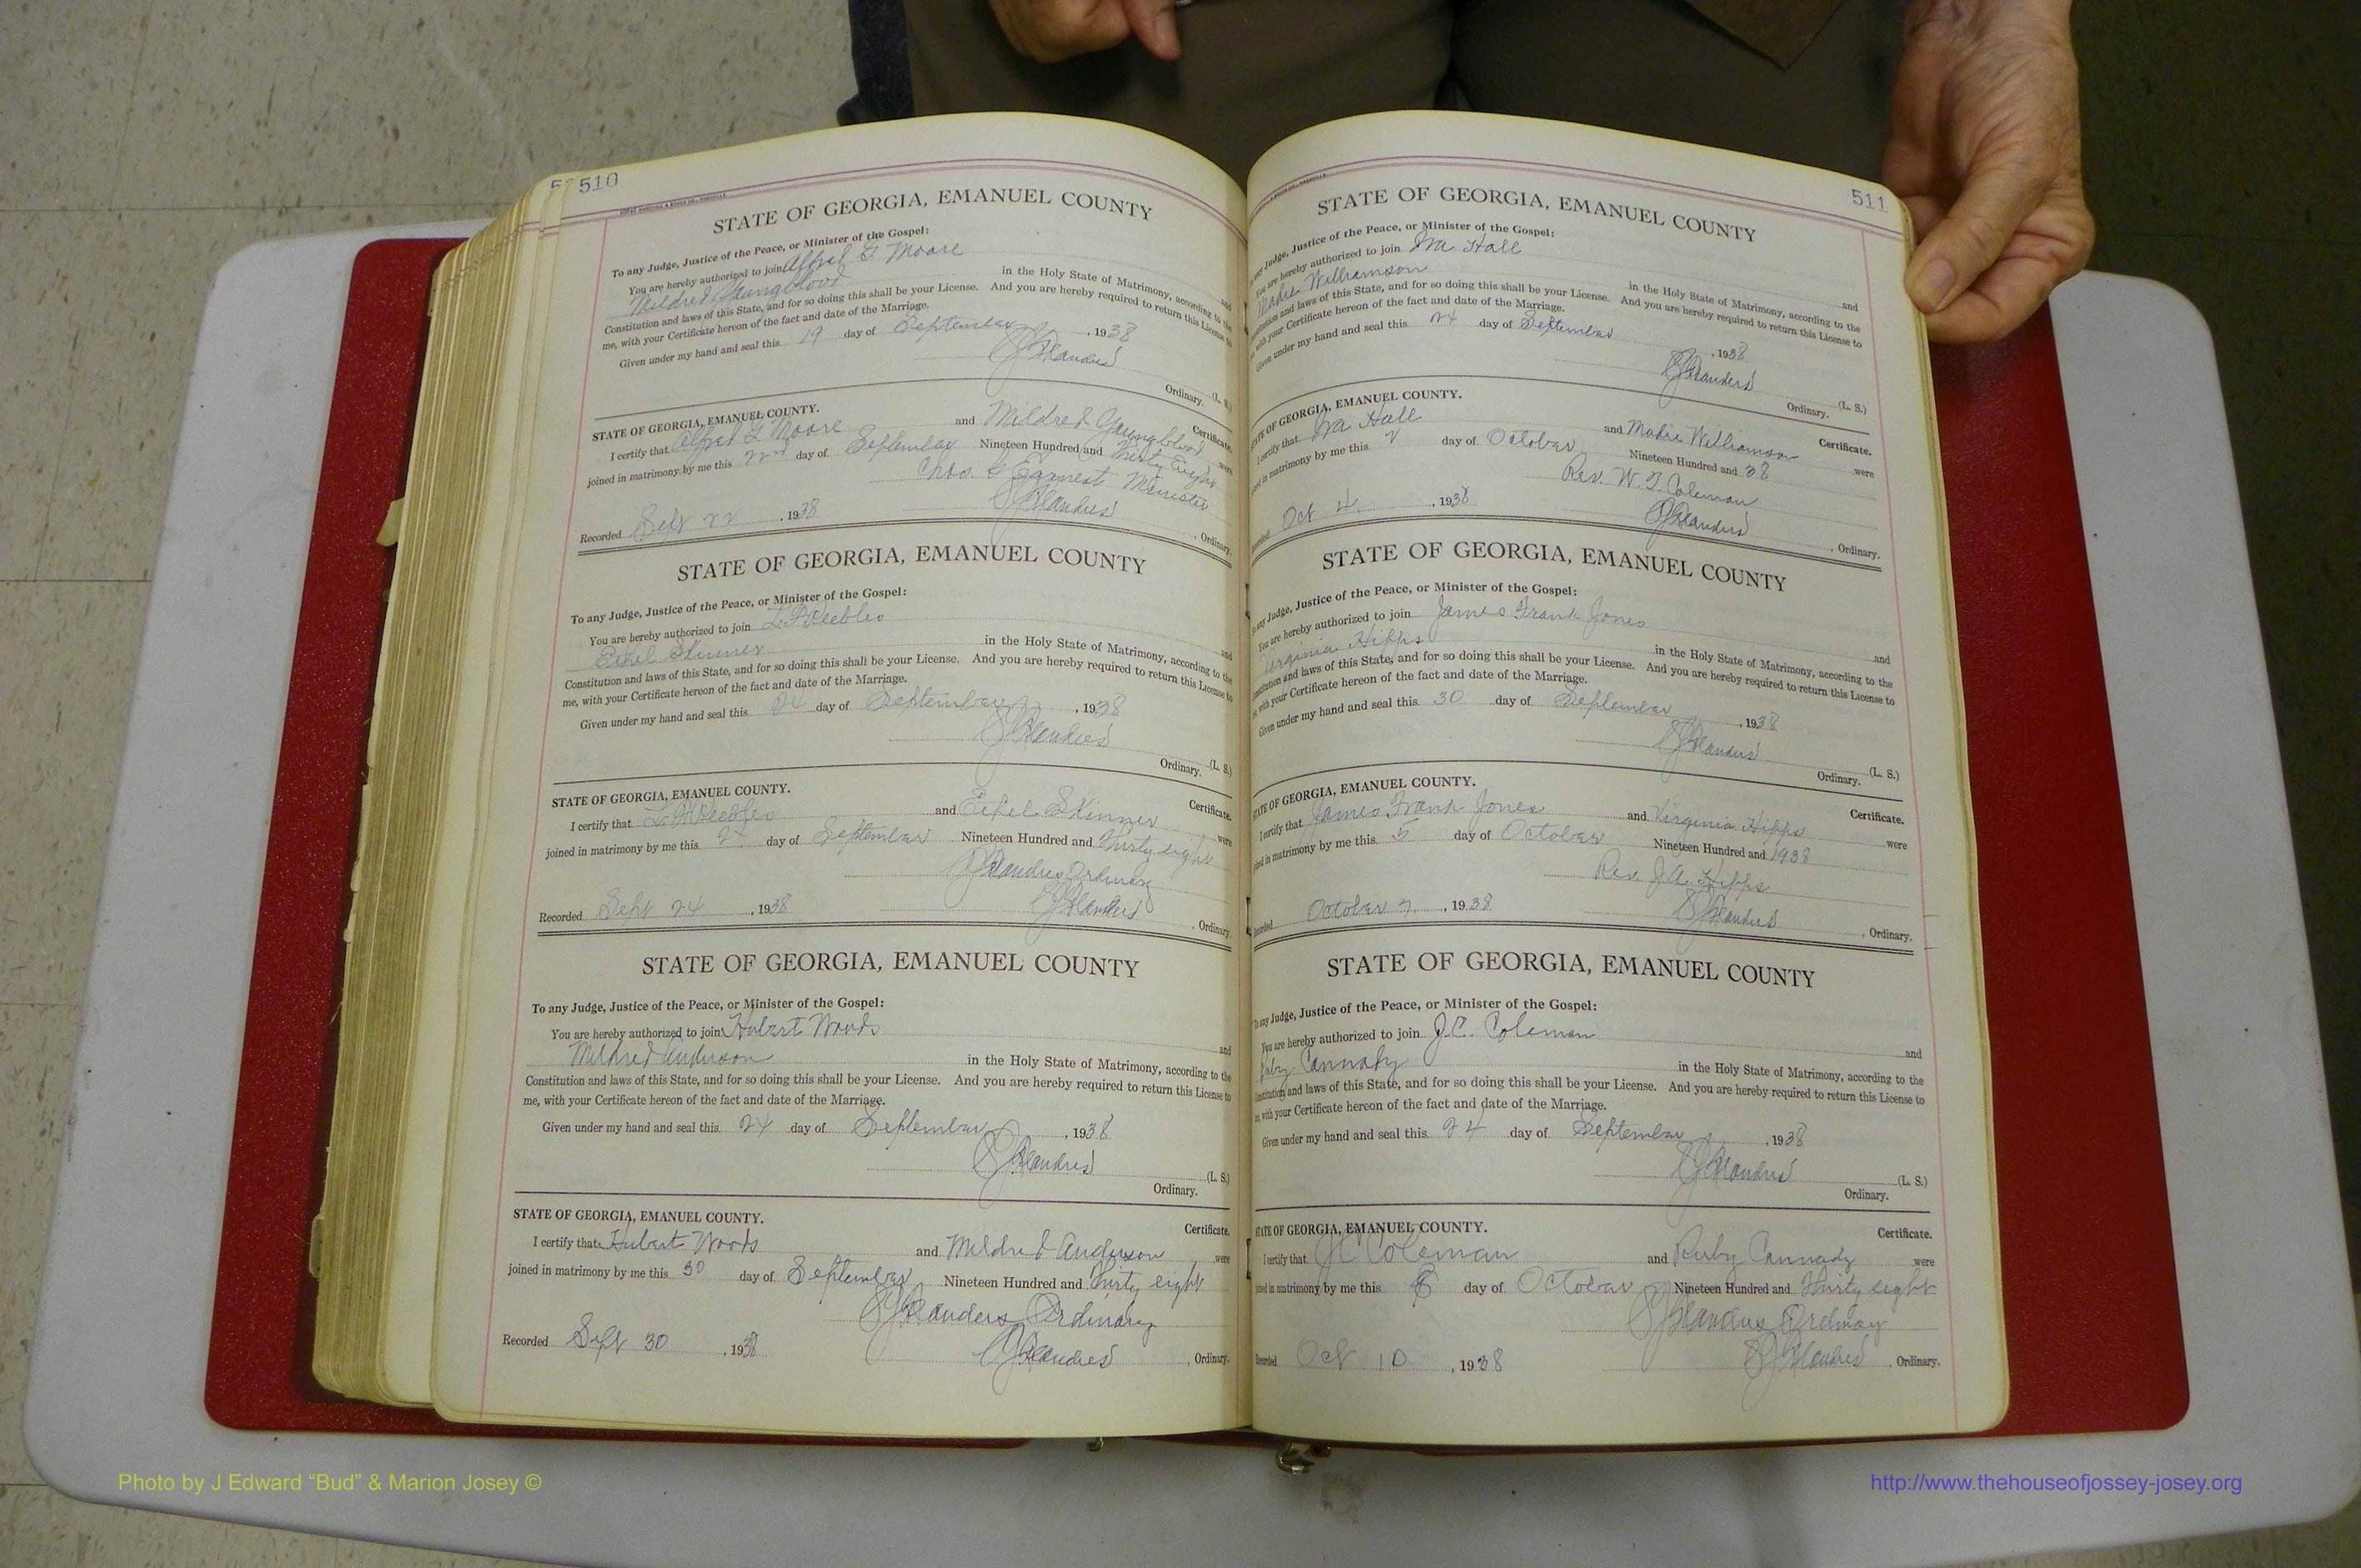 510
STATE OF GEORGIA, EMANUEL COUNTY
To any Judge, Justice of the Peace, or Minister of the Gospel:
You are hereby authorized to join Alfred G Moore and
Mildred Youngblood in the Holy State of Matrimony, according to the
Constitution and laws of this State, and for so doing this shall be your License. And you are hereby required to return this License to
me, with your Certificate hereon of the fact and date of the Marriage.
Given under my hand and seal this 19 day of September, 1938
(L. S.)
Ordinary.
STATE OF GEORGIA, EMANUEL COUNTY. Certificate.
I certify that Alfred G Moore and Mildred Youngblood were
joined in matrimony by me this 22nd day of September Nineteen Hundred and Thirty Eight
Chas. G Earnest Minister
Recorded Sept 22, 1938, Ordinary.
STATE OF GEORGIA, EMANUEL COUNTY
To any Judge, Justice of the Peace, or Minister of the Gospel:
You are hereby authorized to join Peebles and
Ethel Skinner in the Holy State of Matrimony, according to the
Constitution and laws of this State, and for so doing this shall be your License. And you are hereby required to return this License to
me, with your Certificate hereon of the fact and date of the Marriage.
Given under my hand and seal this 24 day of September, 1938
(L. S.)
Ordinary.
STATE OF GEORGIA, EMANUEL COUNTY. Certificate.
I certify that Peebles and Ethel Skinner were
joined in matrimony by me this 24 day of September Nineteen Hundred and Thirty eight
Flanders Ordinary
Recorded Sept 24, 1938 Flanders, Ordinary.
STATE OF GEORGIA, EMANUEL COUNTY
To any Judge, Justice of the Peace, or Minister of the Gospel:
You are hereby authorized to join Hubert Woods and
Mildred Anderson in the Holy State of Matrimony, according to the
Constitution and laws of this State, and for so doing this shall be your License. And you are hereby required to return this License to
me, with your Certificate hereon of the fact and date of the Marriage.
Given under my hand and seal this 24 day of September, 1938
Flanders (L. S.)
Ordinary.
STATE OF GEORGIA, EMANUEL COUNTY. Certificate.
I certify that Hubert Woods and Mildred Anderson were
joined in matrimony by me this 30 day of September Nineteen Hundred and Thirty eight
Flanders Ordinary
Recorded Sept 30, 1938 Flanders, Ordinary.
511
STATE OF GEORGIA, EMANUEL COUNTY
any Judge, Justice of the Peace, or Minister of the Gospel:
You are hereby authorized to join Ira Hall and
Madie Williamson in the Holy State of Matrimony, according to the
and laws of this State, and for so doing this shall be your License. And you are hereby required to return this License to
with your Certificate hereon of the fact and date of the Marriage.
Given under my hand and seal this 24 day of September, 1938
Flanders (L. S.)
Ordinary.
STATE OF GEORGIA, EMANUEL COUNTY. Certificate.
I certify that Ira Hall and Madie Williamson were
in matrimony by me this 2 day of October Nineteen Hundred and 38
Rev. W. T. Coleman
Oct 4, 1938 Flanders, Ordinary.
STATE OF GEORGIA, EMANUEL COUNTY
any Judge, Justice of the Peace, or Minister of the Gospel:
You are hereby authorized to join James Frank Jones and
Virginia Hipps in the Holy State of Matrimony, according to the
and laws of this State, and for so doing this shall be your License. And you are hereby required to return this License to
with your Certificate hereon of the fact and date of the Marriage.
Given under my hand and seal this 30 day of September, 1938
Flanders (L. S.)
Ordinary.
STATE OF GEORGIA, EMANUEL COUNTY. Certificate.
I certify that James Frank Jones and Virginia Hipps were
in matrimony by me this 5 day of October Nineteen Hundred and 1938
Rev. J. A. Hipps
October 7, 1938 Flanders, Ordinary.
STATE OF GEORGIA, EMANUEL COUNTY
To any Judge, Justice of the Peace, or Minister of the Gospel:
You are hereby authorized to join J.C. Coleman and
Ruby Cannady in the Holy State of Matrimony, according to the
Constitution and laws of this State, and for so doing this shall be your License. And you are hereby required to return this License to
with your Certificate hereon of the fact and date of the Marriage.
Given under my hand and seal this 24 day of September, 1938
Flanders (L. S.)
Ordinary.
STATE OF GEORGIA, EMANUEL COUNTY. Certificate.
I certify that J C Coleman and Ruby Cannady were
joined in matrimony by me this 8 day of October Nineteen Hundred and Thirty eight
Flanders Ordinary
Recorded Oct 10, 1938 Flanders, Ordinary.
Photo by J Edward “Bud” & Marion Josey ©
http://www.thehouseofjossey-josey.org